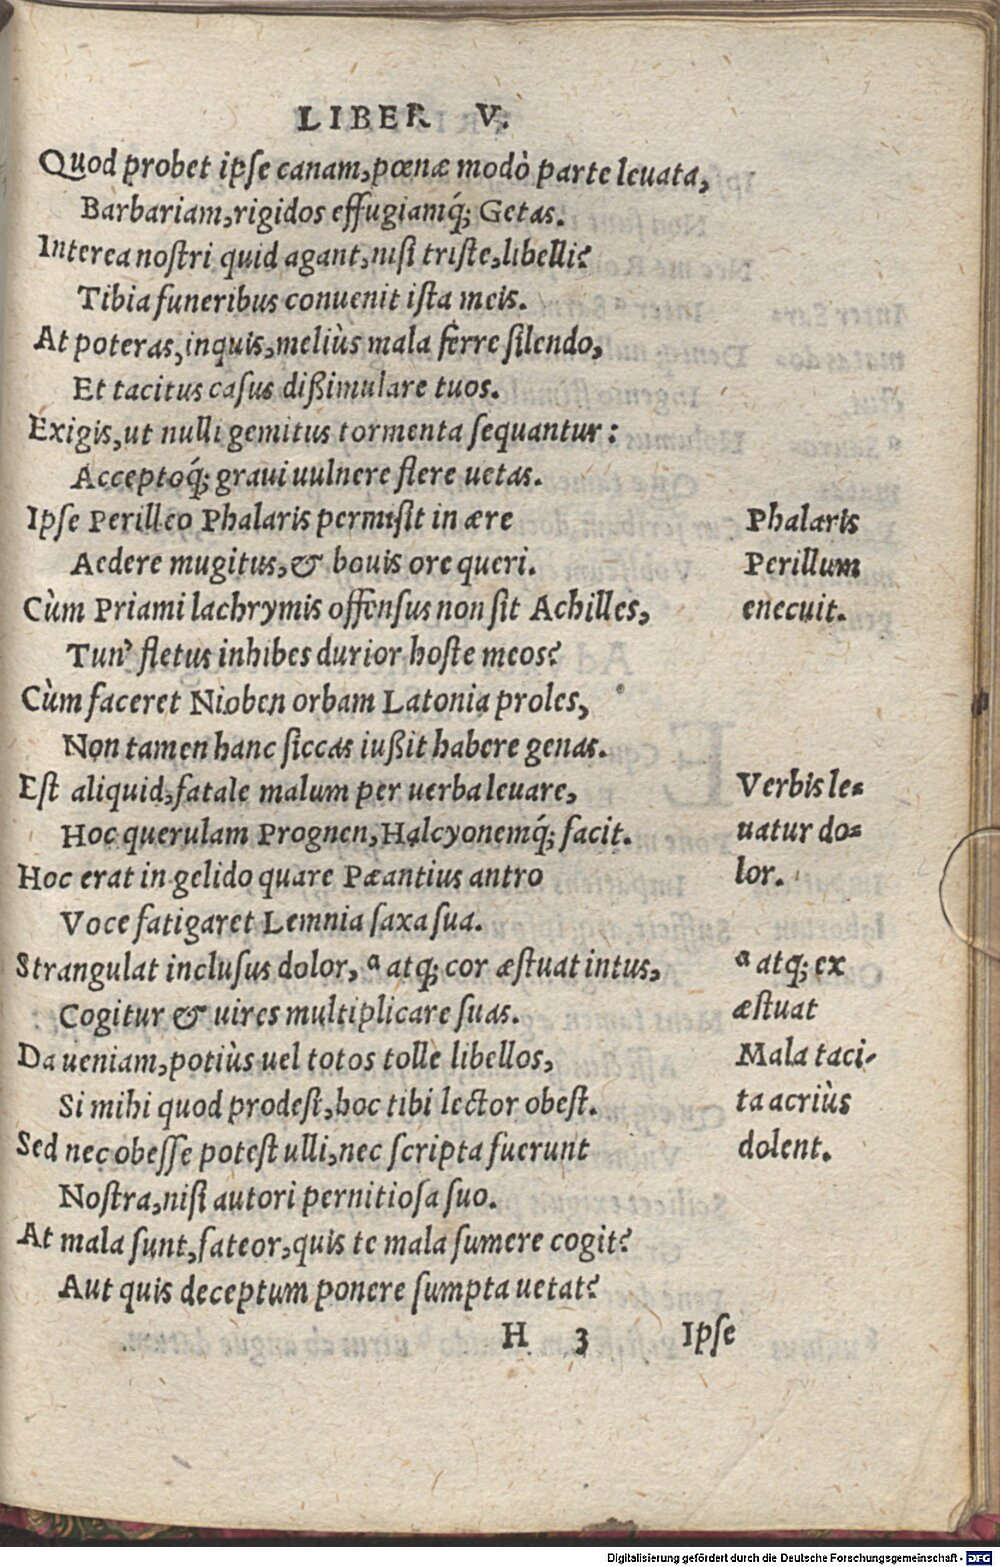 LIBER V.
Quod probet ipse canam, pœnæ modò parte leuata,
Barbariam, rigidos effugiamq́; Getas.
Interea nostri quid agant, nisi triste, libelli?
Tibia funeribus conuenit ista meis.
At poteras, inquis, meliùs mala ferre silendo,
Et tacitus casus dißimulare tuos.
Exigis, ut nulli gemitus tormenta sequantur:
Acceptoq́; graui uulnere flere uetas.
Ipse Perilleo Phalaris permisit in ære
Aedere mugitus, & bouis ore queri.
Cùm Priami lachrymis offensus non sit Achilles,
Tun' fletus inhibes durior hoste meos?
Cùm faceret Nioben orbam Latonia proles,
Non tamen hanc siccas iußit habere genas.
Est aliquid, fatale malum per uerba leuare,
Hoc querulam Prognen, Halcyonemq́; facit.
Hoc erat in gelido quare Pæantius antro
Voce fatigaret Lemnia saxa sua.
Strangulat inclusus dolor, ª atq; cor æstuat intus,
Cogitur & uires multiplicare suas.
Da ueniam, potiùs uel totos tolle libellos,
Si mihi quod prodest, hoc tibi lector obest.
Sed nec obesse potest ulli, nec scripta fuerunt
Nostra, nisi autori pernitiosa suo.
At mala sunt, fateor, quis te mala sumere cogit?
Aut quis deceptum ponere sumpta uetat?
H 3 Ipse
Phalaris
Perillum
enecuit.
Verbis le=
uatur do=
lor.
ª atq; ex
æstuat
Mala taci-
ta acriùs
dolent.
Digitalisierung gefördert durch die Deutsche Forschungsgemeinschaft - DFG